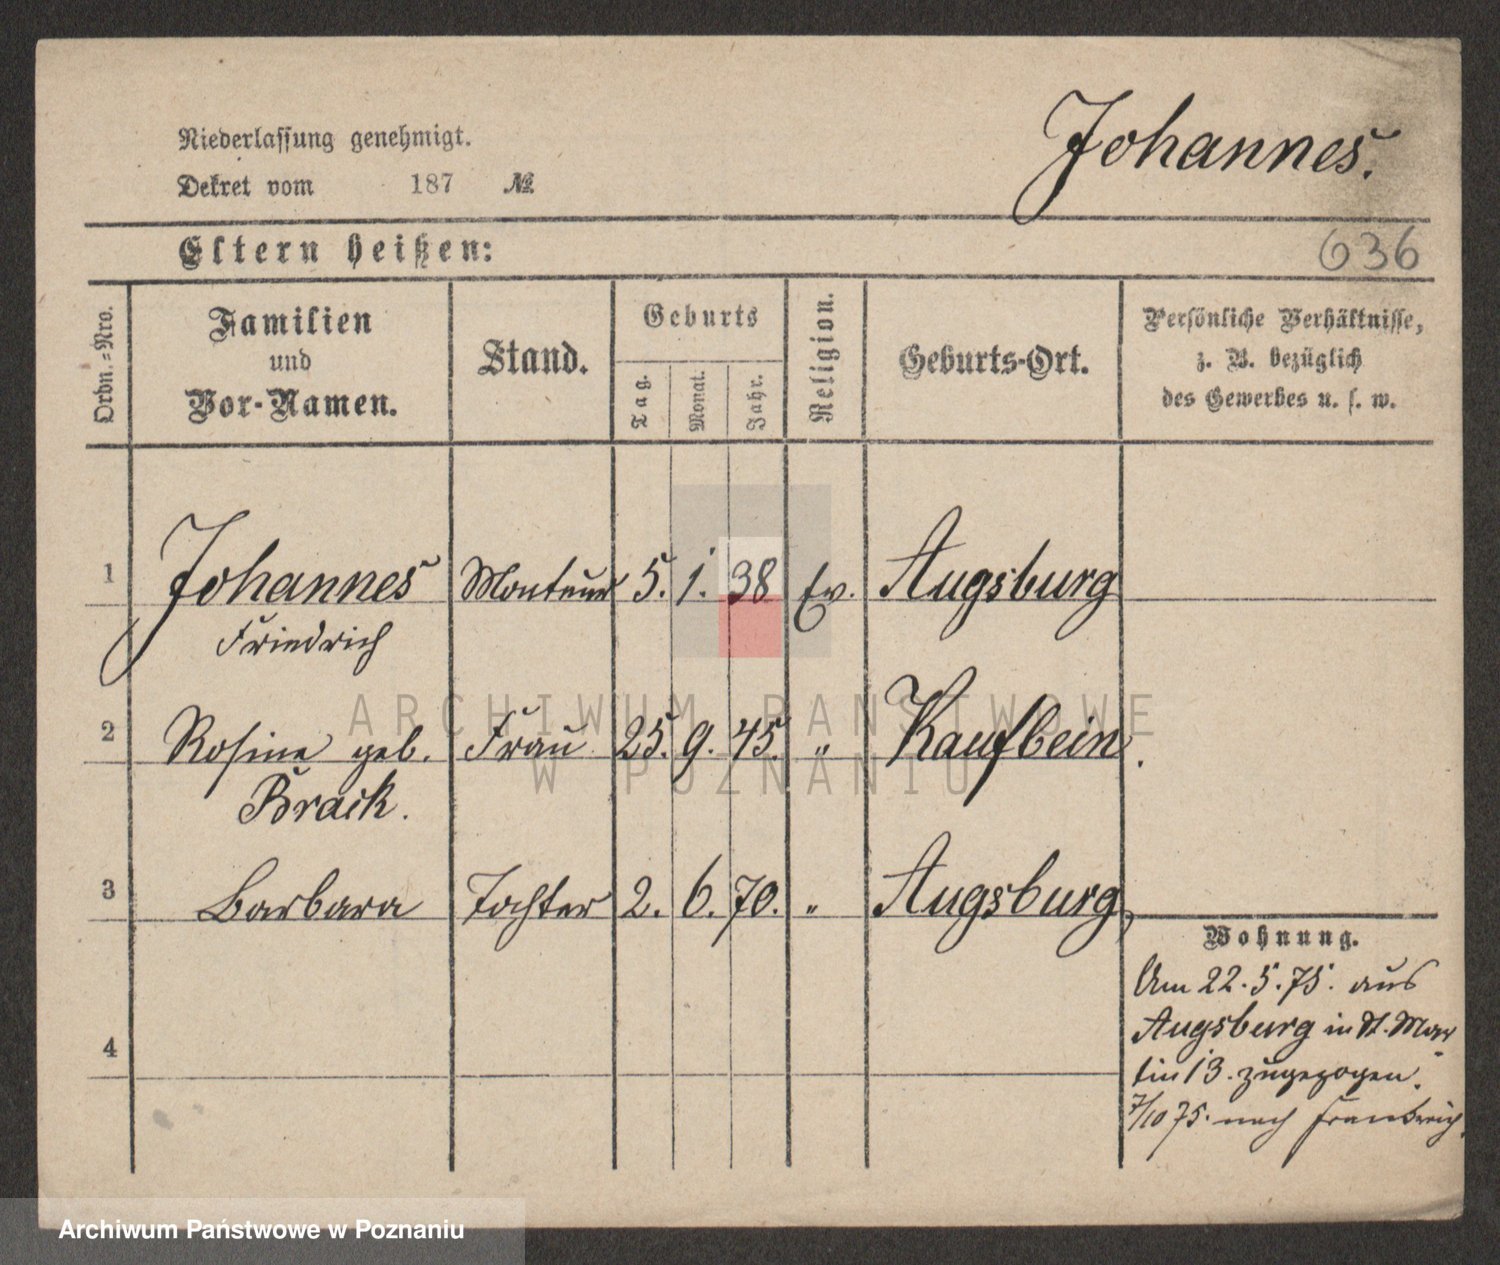 Niederlassung genehmigt.
Dekret vom 187 №
Johannes.
Eltern heißen:
636
Ordn.-Nro.
Familien
und
Vor-Namen.
Stand.
Geburts
Tag.
Monat.
Jahr.
Religion.
Geburts-Ort.
Persönliche Verhältnisse,
z. B. bezüglich
des Gewerbes u. s. w.
1 Johannes Monteur 5. 1. 38 Ev. Augsburg
Friedrich
2 Rosine geb. Frau 25. 9. 45. " Kaufbein.
Brack.
3 Barbara Tochter 2. 6. 70. " Augsburg
4
Wohnung.
Am 22.5.75. aus
Augsburg in St. Mar
tin 13. zugezogen.
7/10 75. nach Frankreich.
ARCHIWUM PAŃSTWOWE
W POZNANIU
Archiwum Państwowe w Poznaniu